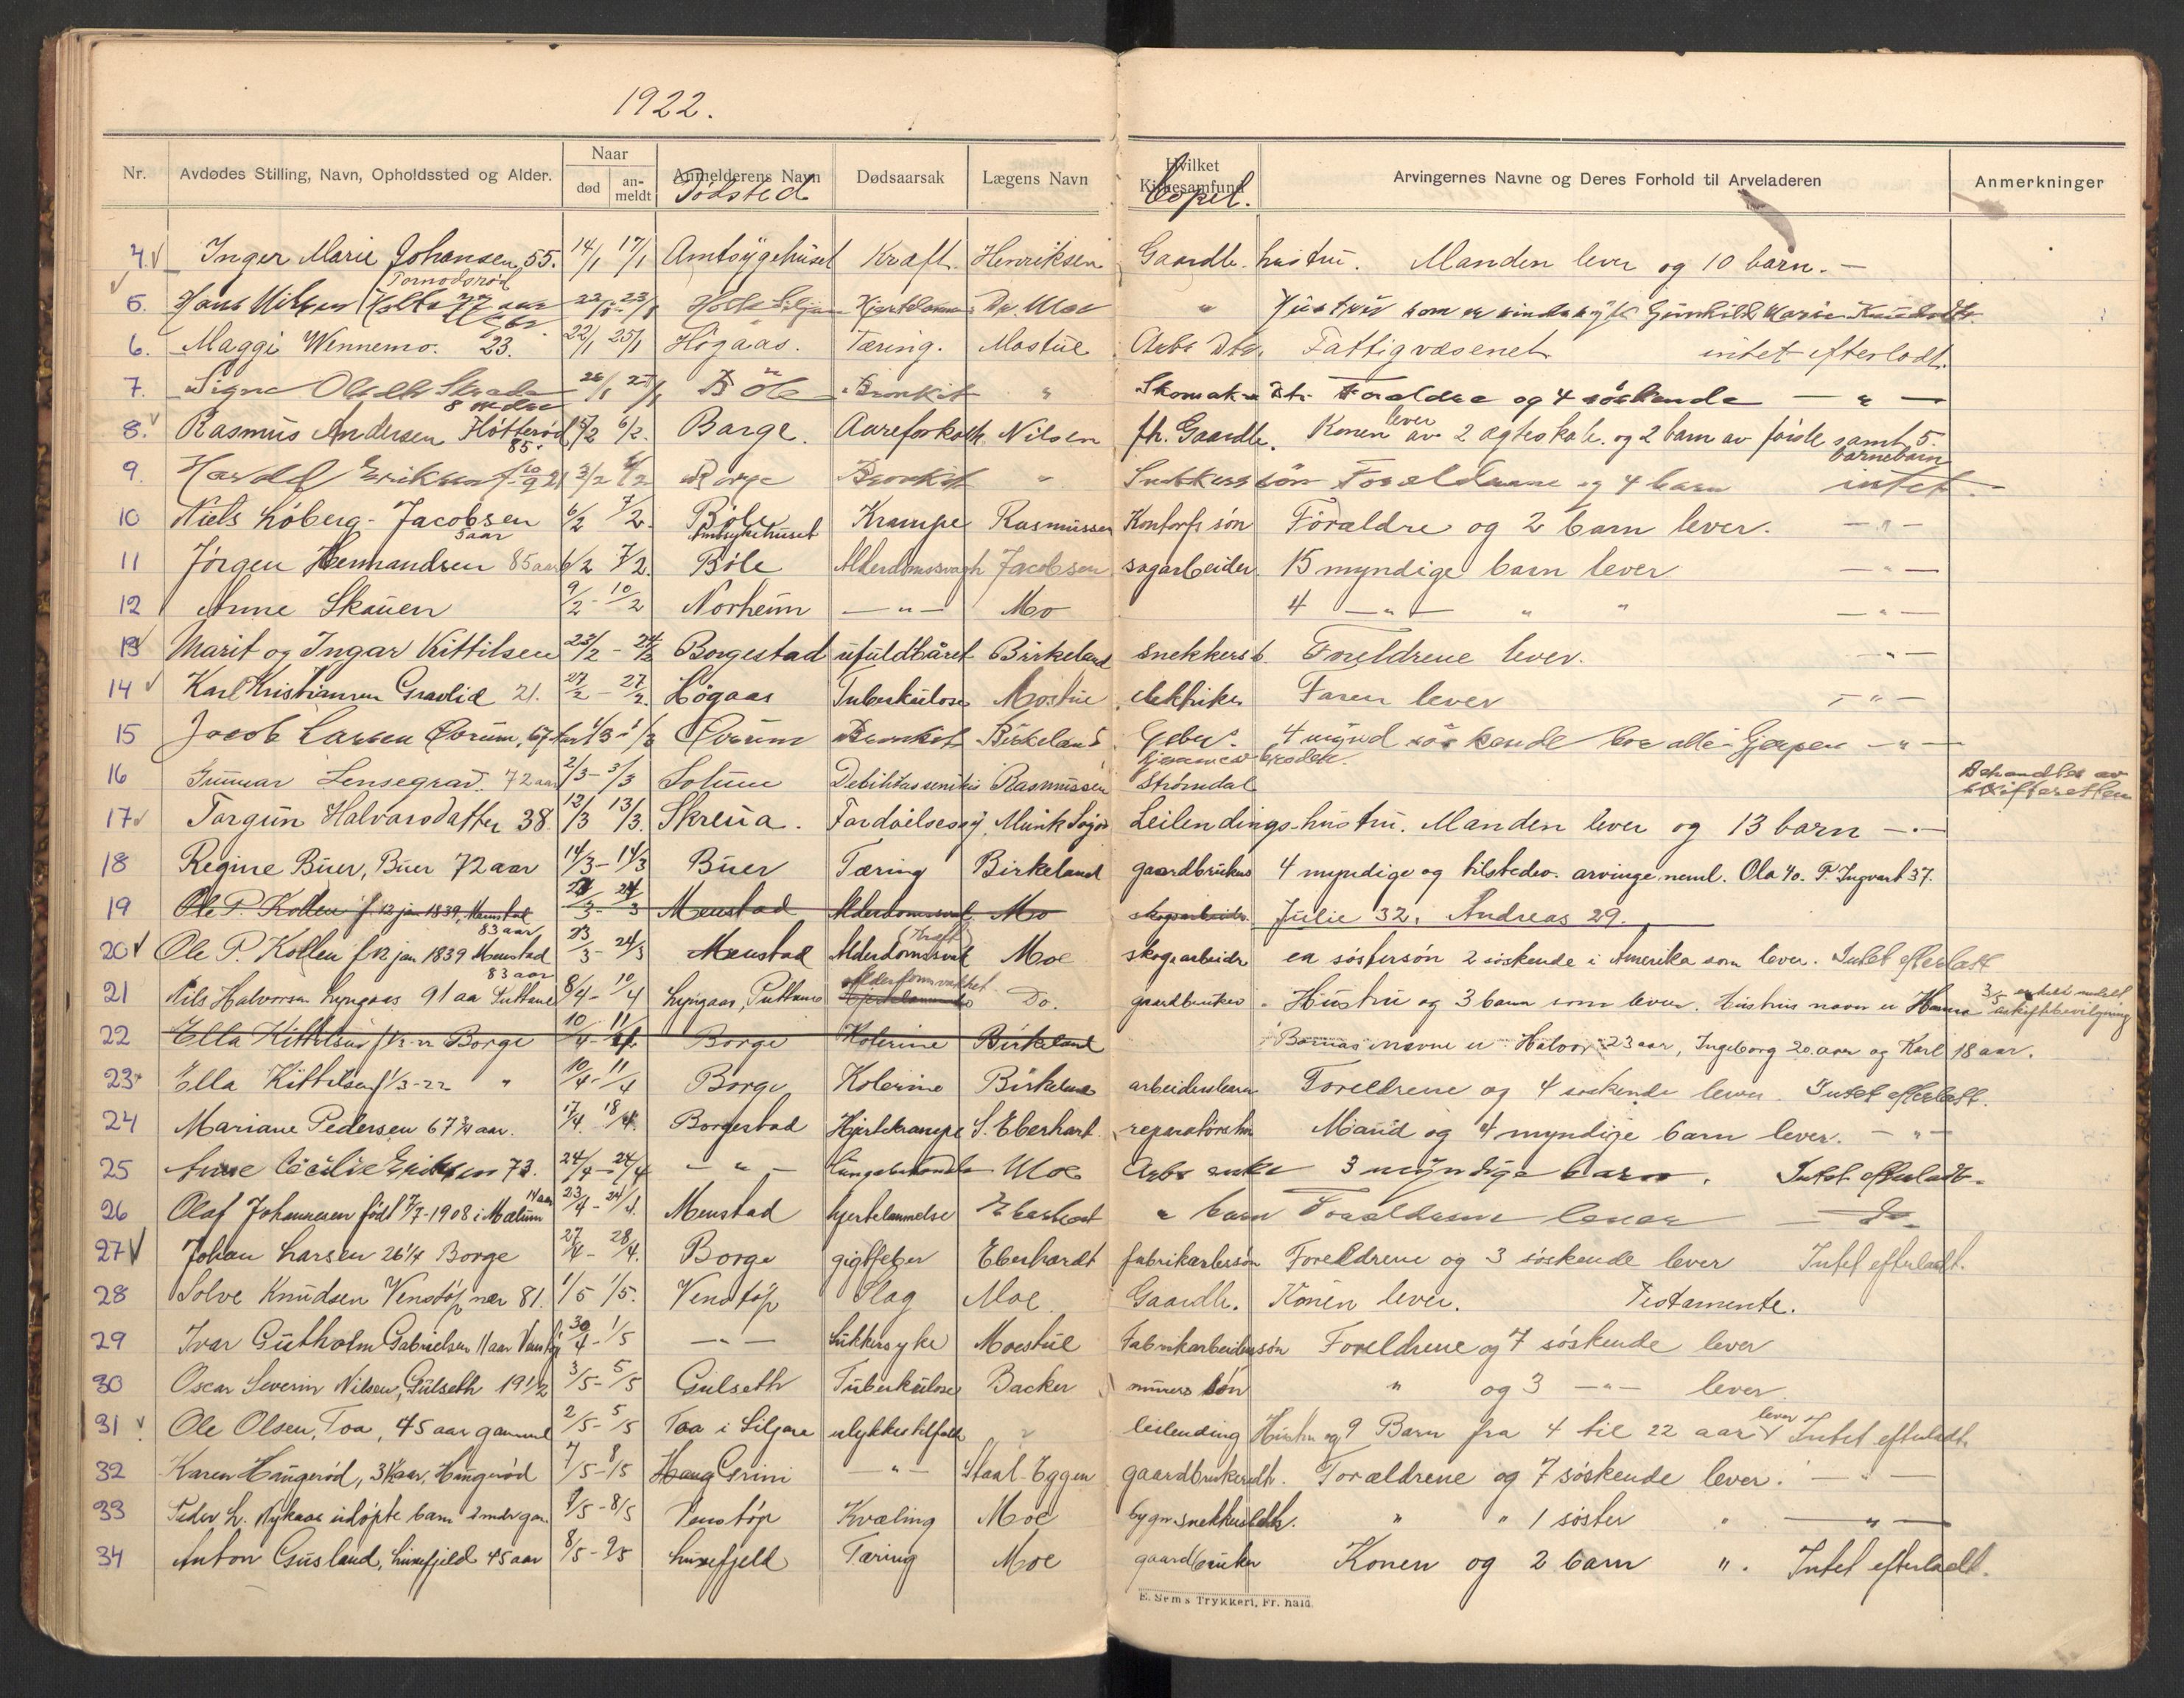 1922.
Nr. Avdødes Stilling, Navn, Opholdssted og Alder. Naar død anmeldt Anmelderens Navn Dødsted Dødsaarsak Lægens Navn Hvilket Kirkesamfund Arvingernes Navne og Deres Forhold til Arveladeren Anmerkninger
4. Inger Marie Johansen, 55. 14/1 17/1 Amtsygehuset Kræft. Henriksen Gaardbr. hustru. Manden lever og 10 barn. —
Tornodsrød
5. Hans Nilsen Holte 77 aar 22/1 23/1 Holte Siljan Hjertelammelse Dr. Moe " Hustru som er sindssyk Gunhild Marie
6. Maggi Wennemo. 23. 22/1 25/1 Høgaas. Tæring. Mostue Arb. Dtr. Fattigvæsenet intet efterladt.
7. Signe 26/1 27/1 Böle Bronkit " Skomak. Dtr. Foreldre og 4 søskende — " —
8 mdr
8. Rasmus Andersen Høtterød 85. 5/2 6/2. Borge. Aareforkalk. Nilsen fh. Gaardbr. Konen lever av 2 ægteskab. og 2 barn av første samt 5. barnebarn
9. Harald Eriksen 3/2 6/2 Borge Bronkit " Snekkers søn Foreldrene og 4 barn intet. —
10 Niels Løberg-Jacobsen 6/2 7/2. Böle Krampe Rasmussen Kontorfs søn Forældre og 2 barn lever. — " —
5 aar Amtsykehuset
11 Jørgen Hermandsen 85 aar 6/2 7/2. Bøle Alderdomssvagh Jacobsen sagarbeider 15 myndige barn lever — " —
12 Anne Skauen 9/2 - 10/2 Norheim — " — Mo 4 — " — " " — " —
13 Marit og Ingar Kittilsen 23/2 - 24/2 Borgestad ufuldbåret Birkeland snekkers b. Foreldrene lever. — " —
14 Karl Kristiansen Gravlid 21. 27/2 - 27/2. Høgaas Tuberkulose Mostue elektriker Faren lever — " —
15 Jacob Larsen Øvrum, 67 aar 1/3 - 1/3 Øvrum Bronkit Birkeland Gbr. 4 mynd søskende bor alle i Gjerpen — " —
16 Gunnar Lensegrav. 72 aar 2/3 - 3/3 Solum Debilitas senilis Rasmussen Strømdal broder. Behandles av skifteretten
17 Torgun Halvorsdatter 38. 12/3 13/3. Skreua. Fordøielsessyg. Munk Søegaard Leilendings-hustru. Manden lever og 13 barn — " —
18 Regine Buer, Buer 72 aar 14/3 - 14/3 Buer Tæring Birkeland gaardbrukers 4 myndige og tilstedev. arvinge, neml. Ola 40. P. Ingvart 37.
19 Ole P. Kollen f. 12 jan 1839, Menstad 83 aar 23/3 - 24/3 Menstad Alderdomssvak Mo skogsarbeider. Julie 32. Andreas 29.
20 Ole P. Kollen f. 12 jan 1839 Menstad 83 aar 23/3 - 24/3 Menstad Alderdomssvak (Kræft) Moe skogsarbeider en søstersøn 2 søskende i Amerika som lever. Intet efterlatt
21 Nils Halvorsen Lyngaas 91 aa Luttane 8/4 - 10/4 Lyngaas, Luttane Hjertelammelse Alderdomssvakhet Do. gaardbruker " Hustru og 3 barn som lever. Hustrus navn er Hanna
22 Ella Kittilsen f 1/3-22 Borge 10/4 - 11/4. Borge Kolerine Birkeland Barnas navne er Halvor 23 aar, Ingeborg 20 aar og Karl 18 aar.
23 Ella Kittilsen f 1/3-22 " 10/4 - 11/4 Borge Kolerine Birkeland arbeidersbarn Foreldrene og 4 søskende lever. Intet efterlatt.
24 Mariane Pedersen 67 3/4 aar. 17/4. 18/4. Borgestad Hjertekrampe S. Eberhart reparatørs hu Mand og 4 myndige barn lever. — " —
25 Anne Cecilie Eriksen 73. 24/4 - 24/4 — " — Moe Arbs enke 3 myndige barn. Intet efterladt.
26 Olaf Johannesen født 7/7-1908 i Mælum 14 aar 23/4 - 24/4. Menstad hjertelammelse Eberhart " barn Foreldrene lever — Do —
27 Johan Larsen 26 1/4 Borge 27/4 - 28/4. Borge gigtfeber Eberhardt fabrikarbersøn Foreldrene og 3 søskende lever Intet efterladt.
28 Solve Knudsen Venstøp nær 81. 1/5 1/5. Venstøp Slag Moe Gaardbr. Konen lever. Testamente.
29 Ivar Gutholm Gabrielsen 11 aar Venstøp 30/4 - 1/5 — " — Sukkersyke Moestue Fabrikarbeidersøn Foreldrene og 7 søskende lever
30 Oscar Severin Nilsen, Gulseth 19 1/2 3/5 - 5/5 Gulseth Tuberkulose Backer murers søn " og 3 — " — lever
31 Ole Olsen, Toa, 45 aar gammel 2/5 - 5/5 Toa i Siljare ulykkestilfælde " leilending Hustru og 9 Barn fra 4 til 22 aar lever Intet efterladt.
32 Karen Haugerød, 3 1/2 aar, Haugerød 7/5 - 8/5 Haug Grini — " — Staal-Eggen gaardbrukerdtr. Forældrene og 7 søskende lever. — " —
33 Peder L. Nykaas udøpte barn 2 mdr gam. 7/5 - 8/5 Venstøp Kvæling Moe bygn.snekkers dtr. " " 1 søster " — " —
34 Anton Gusland, Luxefjeld 45 aar 8/5 - 9/5 Luxefjeld Tæring Moe gaardbruker Konen og 2 barn ". Intet efterladt.
E. Sems Trykkeri, Fr.hald.